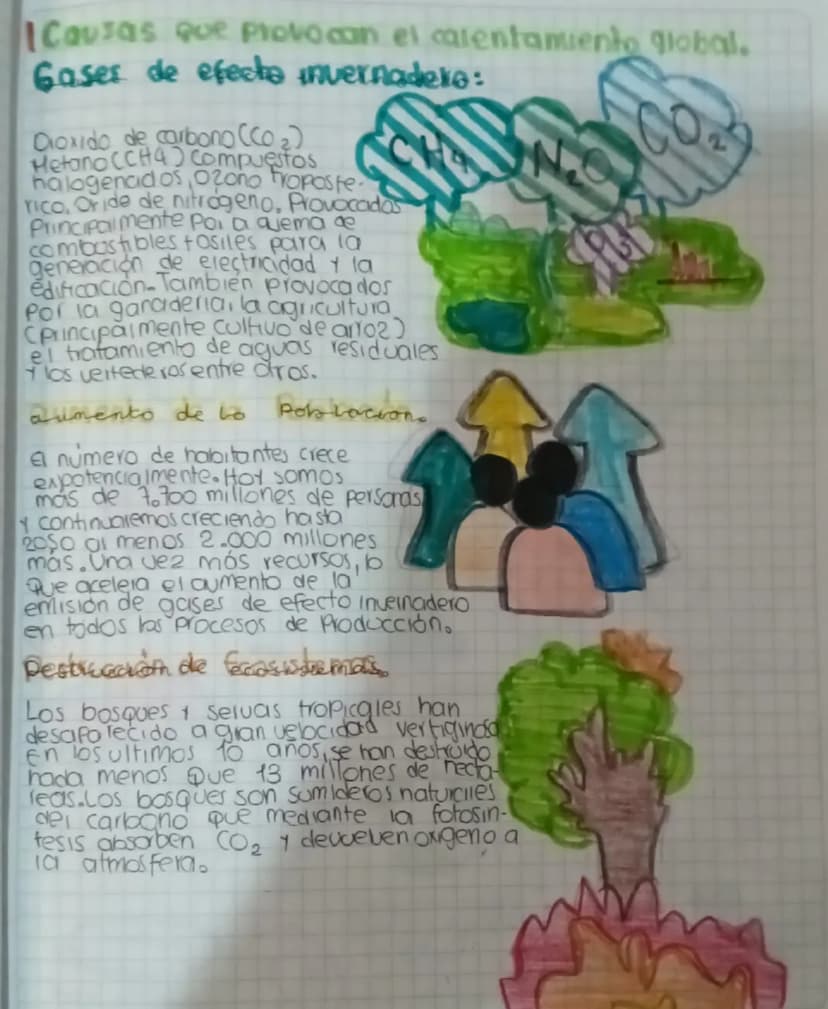 1 Causas que provocan el calentamiento global.
Gases de efecto invernadero:
CH4 N2O CO2
Dioxido de carbono (CO2)
Metano (CH4) compuestos
halogenados, Ozono troposfe-
rico. Oxido de nitrógeno, Provocados
Principalmente Por a quema de
combustibles fosiles para la
generación de electricidad y la
edificación. También provocados
Por la ganaderia, la agricultura
(principalmente cultivo de arroz)
el tratamiento de aguas residuales
y los vertederos entre otros.
aumento de la Población.
El número de habitantes crece
expotencialmente. Hoy somos
más de 7.700 millones de personas
y continuaremos creciendo hasta
2050 al menos 2.000 millones
más. Una vez más recursos, lo
Que acelera el aumento de la
emisión de gases de efecto invernadero
en todos los procesos de Producción.
Destrucción de Ecosistemas.
Los bosques y selvas tropicales han
desaparecido a gran velocidad vertiginosa
En los ultimos 10 años, se han destruido
nada menos Que 13 millones de hecta-
reas. Los bosques son sumideros naturales
del carbono que mediante la fotosin-
tesis absorben CO2 y devuelven oxigeno a
la atmosfera.